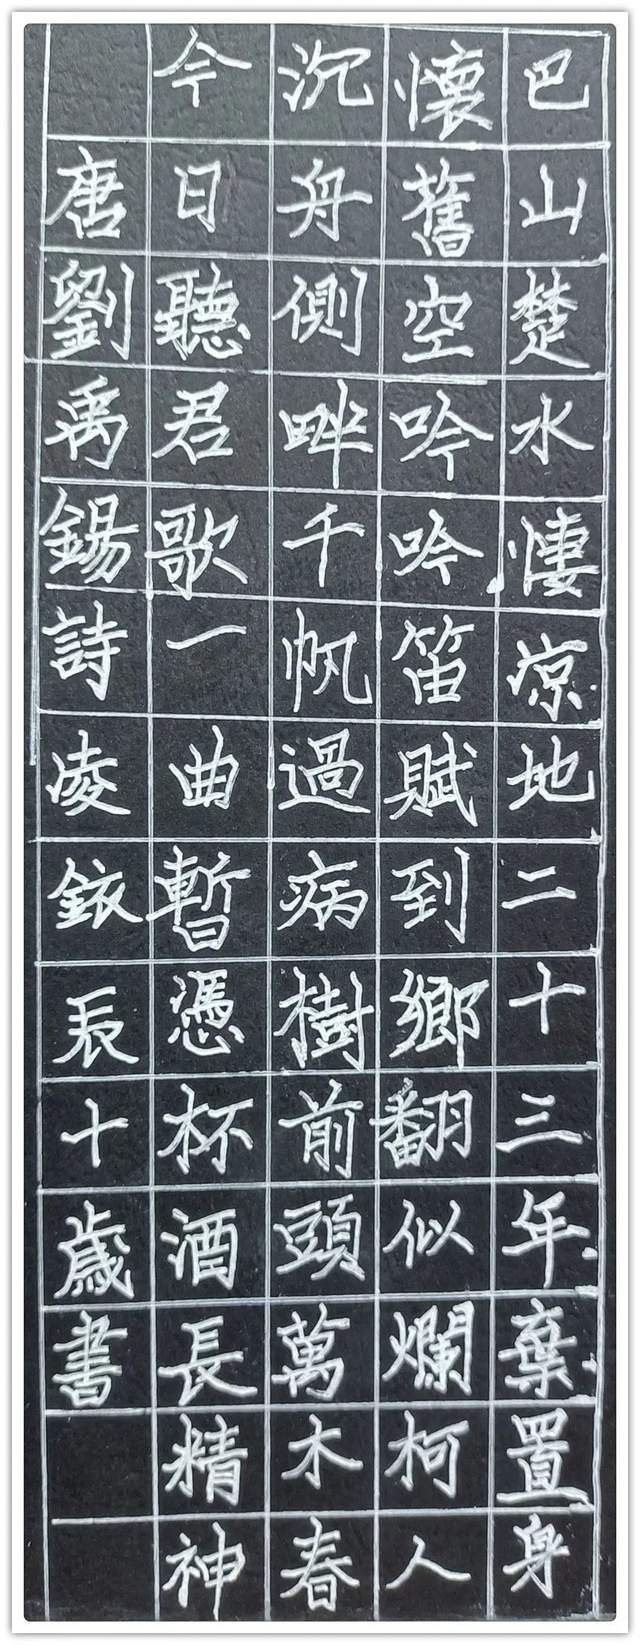 巴山楚水悽涼地二十三年棄置身
懷舊空吟吟笛賦到鄉翻似爛柯人
沉舟側畔千帆過病樹前頭萬木春
今日聽君歌一曲暫憑杯酒長精神
唐劉禹錫詩凌錺辰十歲書